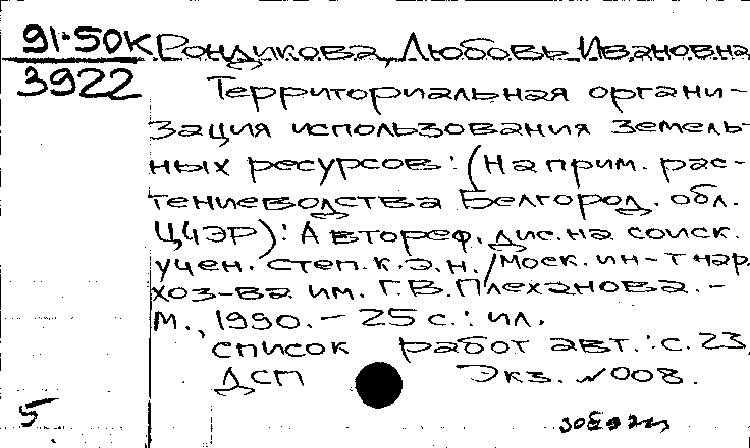 91-50К
3922
Рондикова, Любовь Ивановна
Территориальная органи-
зация использования земель-
ных ресурсов: (На прим. рас-
тениеводства Белгород. обл.
ЦЧЭР): Автореф. дис. на соиск.
учен. степ. к.э.н. /Моск. ин-т нар.
хоз-ва им. Г.В.Плеханова. -
М., 1990. - 25 с.: ил.
список работ авт.: с. 23
ДСП Экз. №008.
5